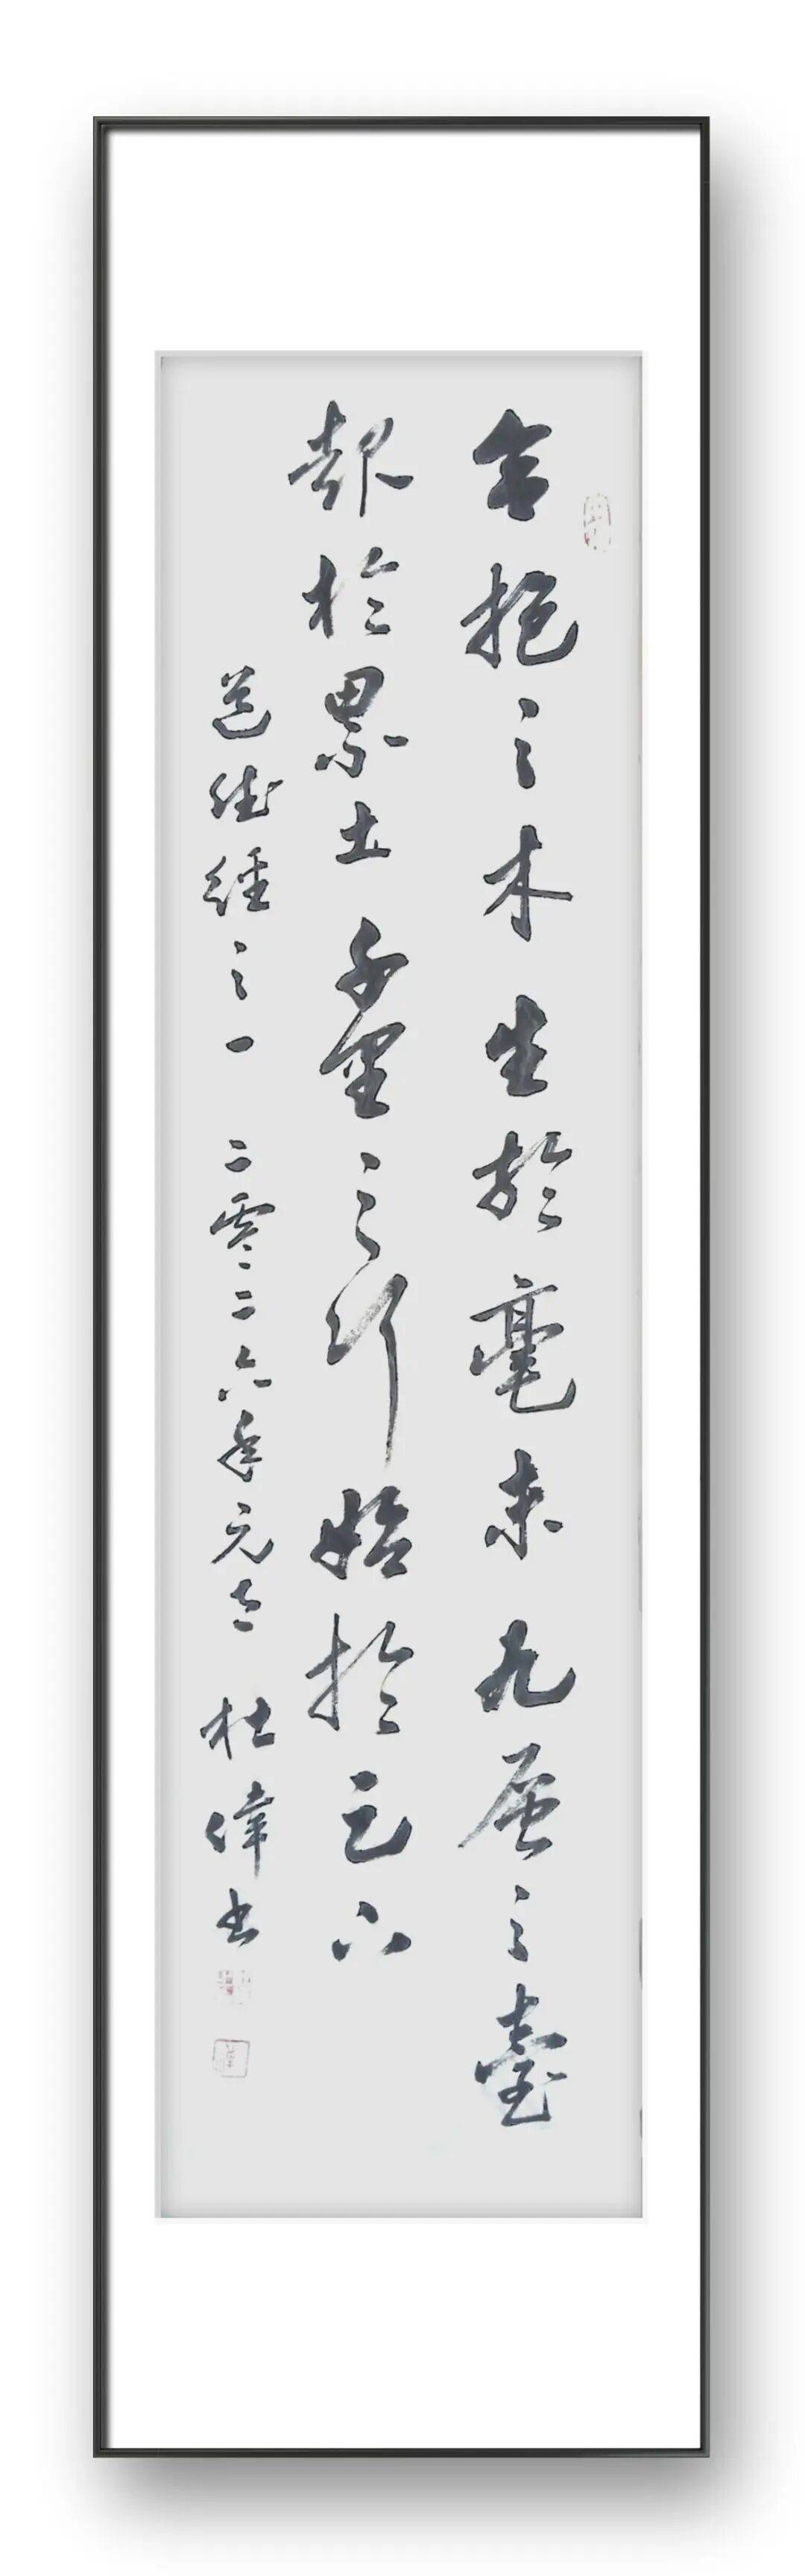 合抱之木生於毫末九層之臺
起於累土千里之行始於足下
道德經之一 二零二六年元 杜偉书